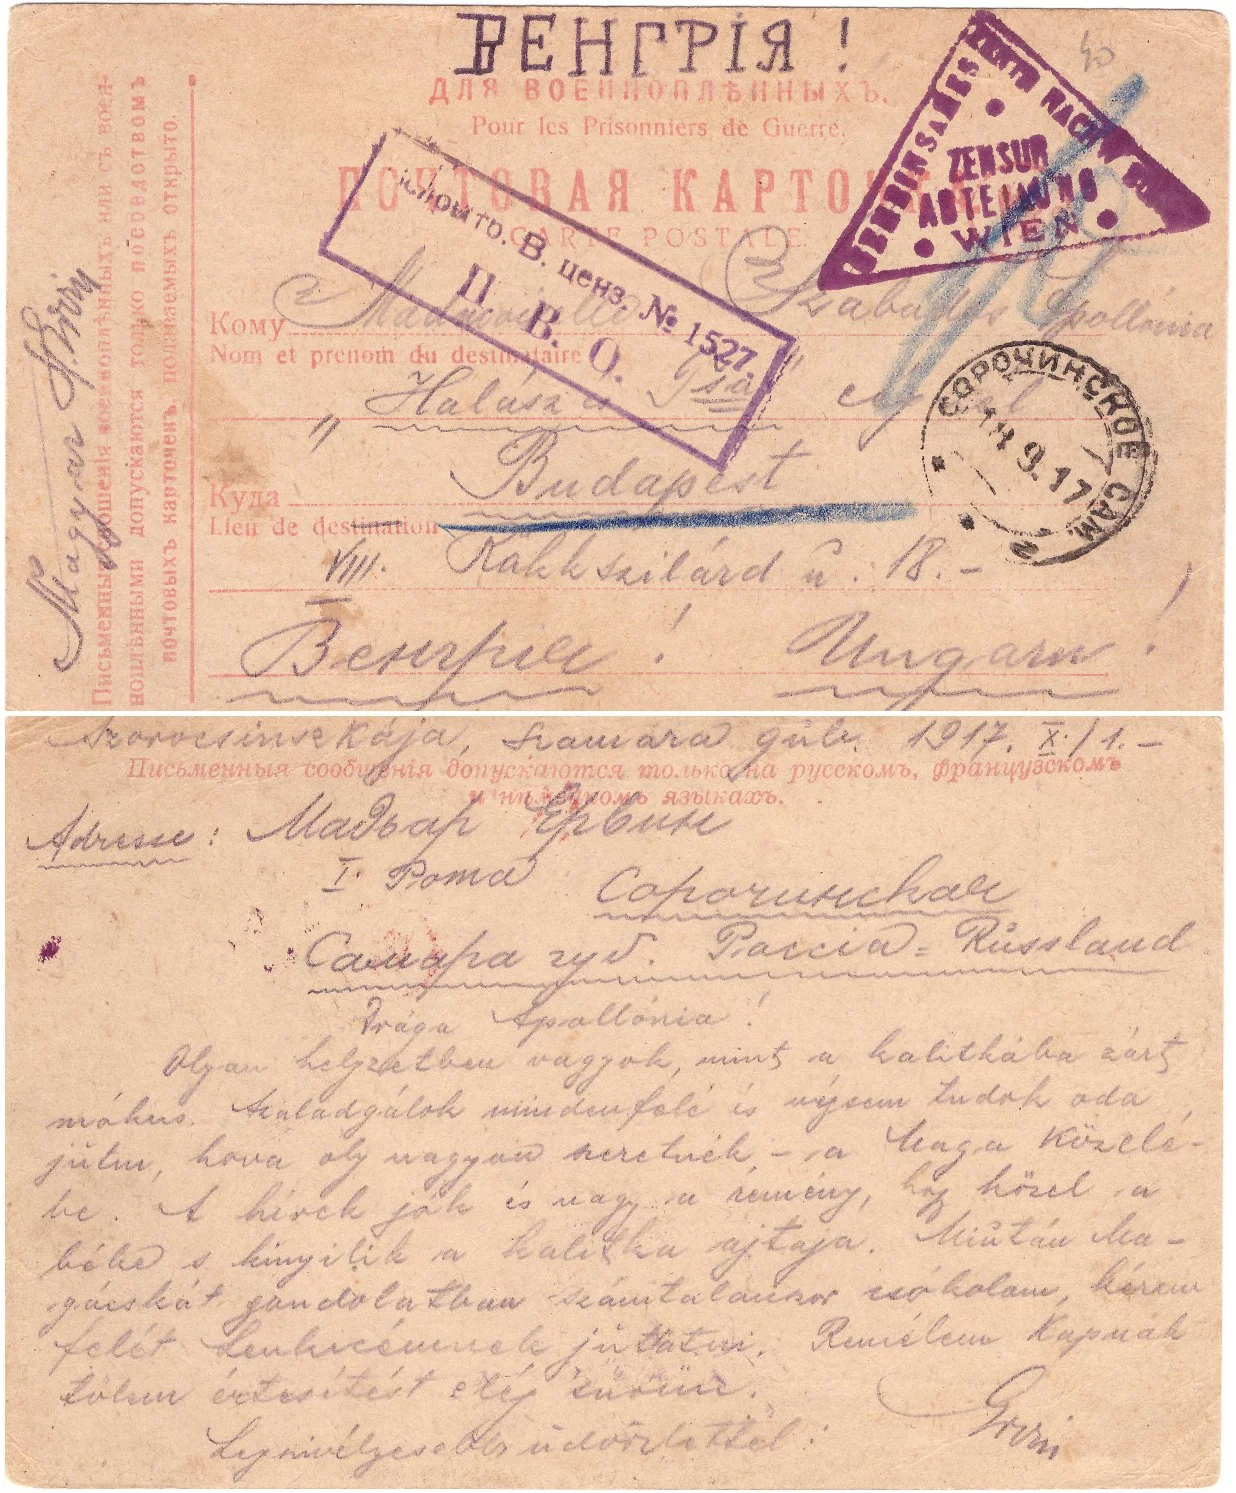 ВЕНГРІЯ!
ДЛЯ ВОЕННОПЛѢННЫХЪ.
Pour les Prisonniers de Guerre.
ПОЧТОВАЯ КАРТОЧКА
CARTE POSTALE
ZENSUR
ABTEILUNG
WIEN
Вскрыто. В. ценз. № 1527.
П. В. О.
Кому Mademoiselle Szabados Apollónia
Nom et prenom du destinataire
„Halász és Tsa” cégnél
Куда Budapest
Lieu de destination
VIII. Rökk Szilárd u. 18.-
Венгрія! Ungarn!
СОРОЧИНСКОЕ САМ.
18 9.17
Magyar Ervin
Письменныя сношенія военноплѣнныхъ или съ воен-
ноплѣнными допускаются только посредствомъ
почтовыхъ карточекъ, подаваемыхъ открыто.
40
Szorocsinszkája, Szamára gub. 1917. X./1.-
Письменныя сообщенія допускаются только на русскомъ, французскомъ
и нѣмецкомъ языкахъ.
Adresse: Мадьар Ервин
I. Рота Сорочинская
Самара губ. Россіа = Russland
Drága Apollónia!
Olyan helyzetben vagyok, mint a kalitkába zárt
mókus. Szaladgálok mindenfelé és mégsem tudok oda
jutni, hova oly nagyon szeretnék, - a Maga közelé-
be. A hírek jók és nagy a remény, hogy közel a
béke s kinyílik a kalitka ajtaja. Miután Ma-
gácskát gondolatban számtalanszor csókolom, kérem
felét Lenkecémnek juttatni. Remélem kapnak
tőlem értesítést elég sűrűn.
Legszívélyesebb üdvözlettel:
Ervin